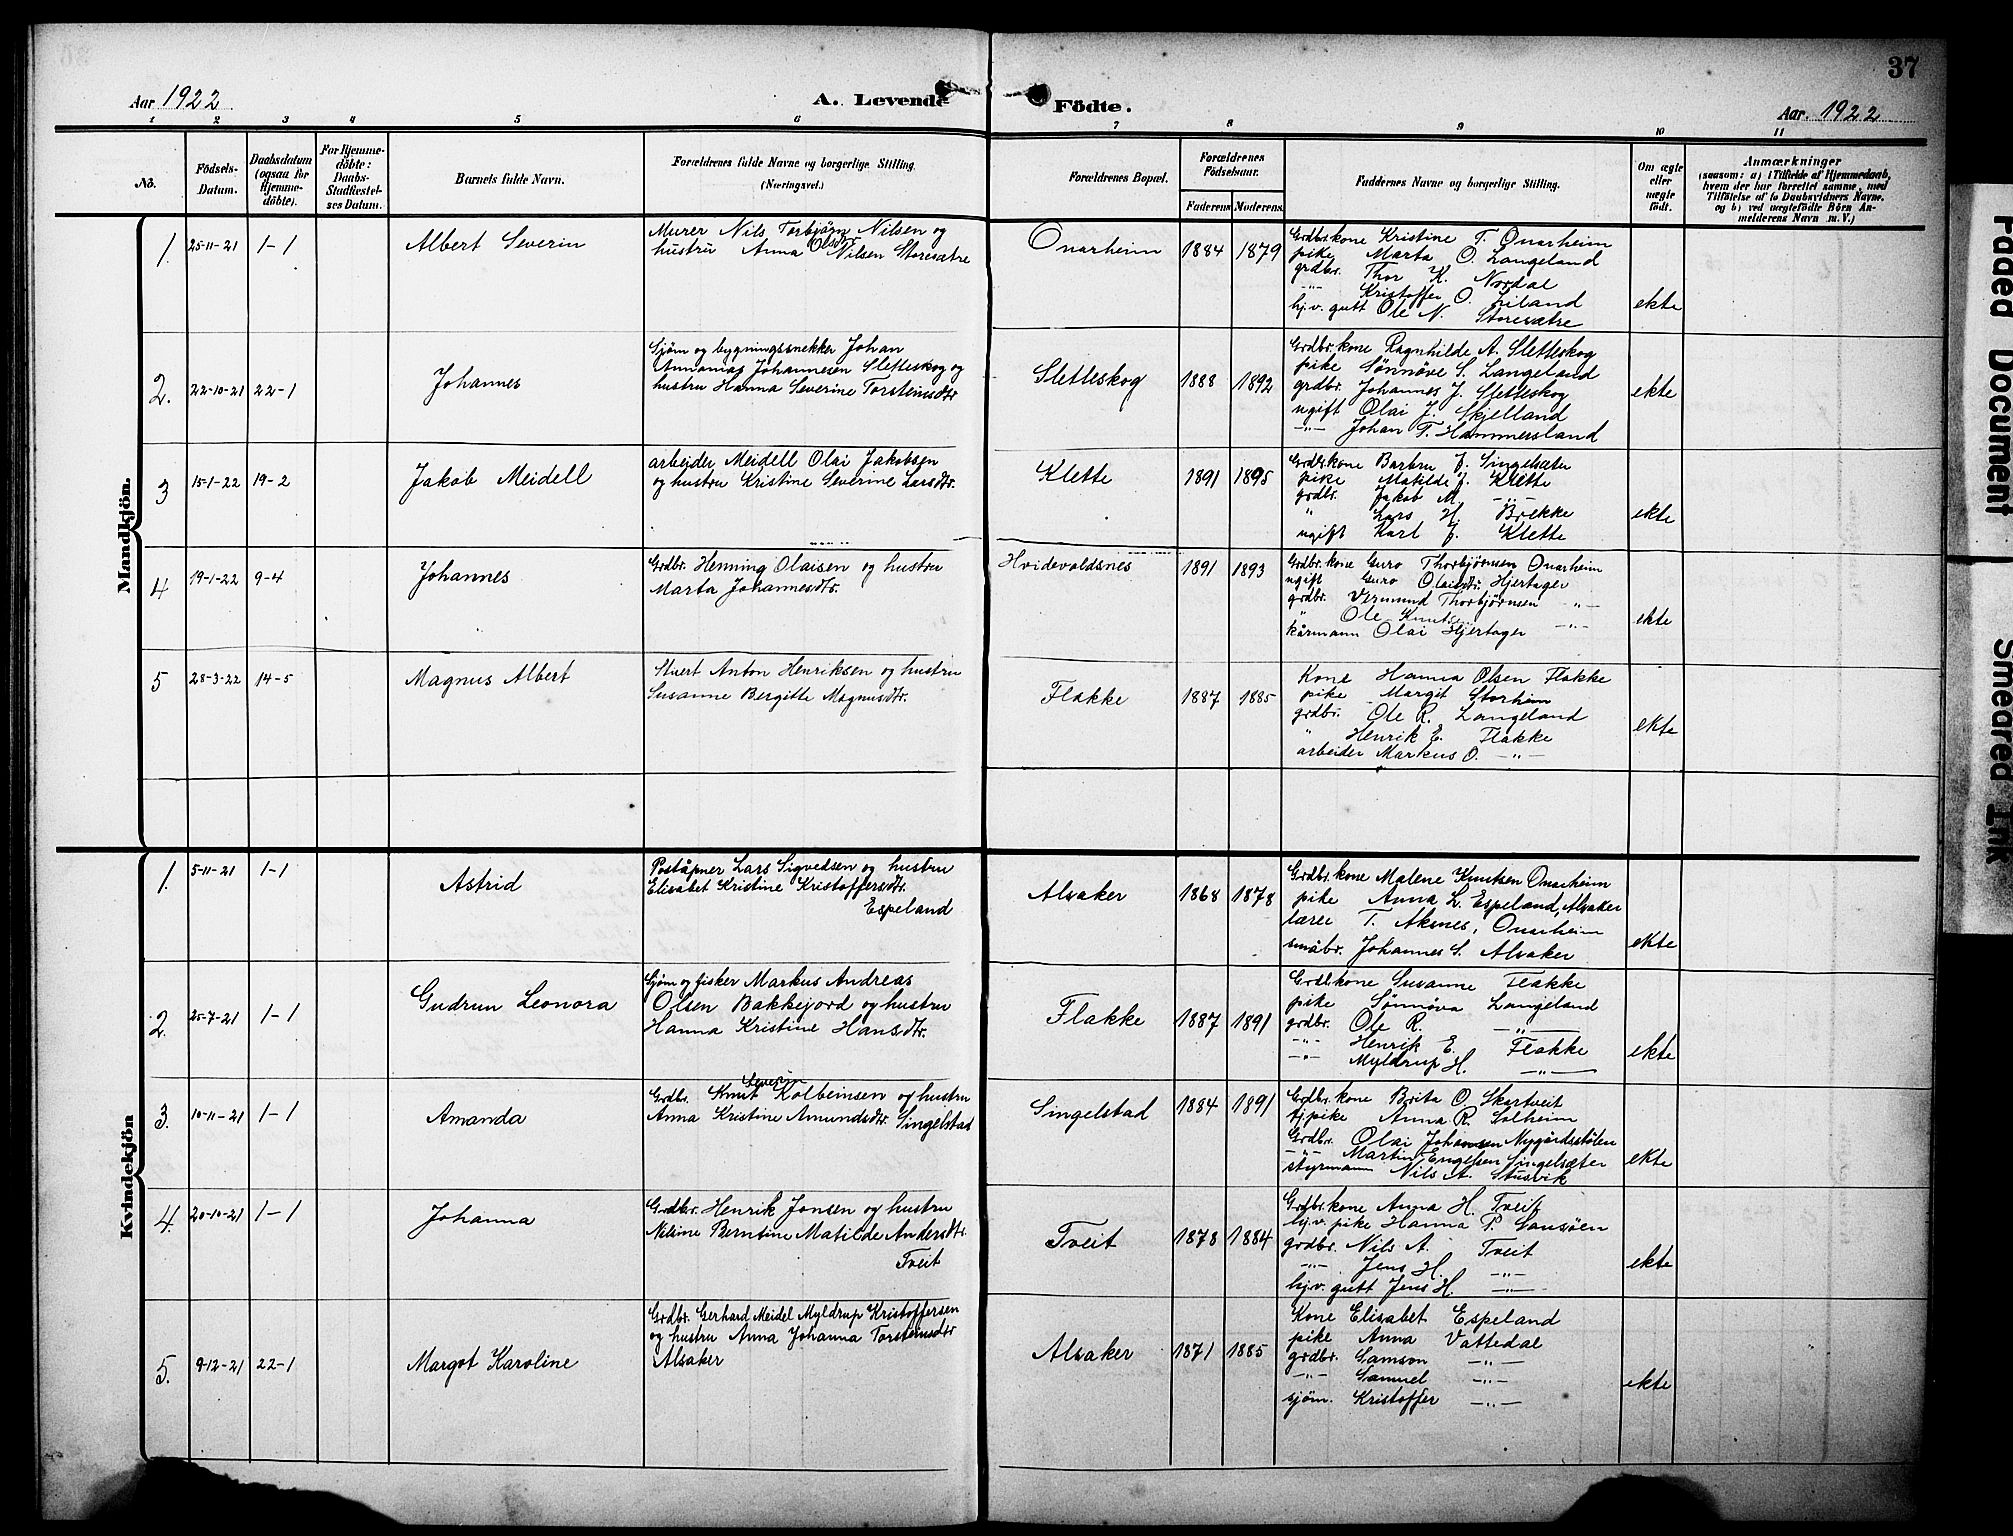 37
Aar 1922
A. Levende Födte.
Aar. 1922
1 2 3 4 5 6 7 8 9 10 11
No.
Födsels-Datum.
Daabsdatum (ogsaa for Hjemme-döbte).
For Hjemme-döbte: Daabs-Stadfæstel-ses Datum.
Barnets fulde Navn.
Forældrenes fulde Navne og borgerlige Stilling. (Næringsvei.)
Forældrenes Bopæl.
Forældrenes Födselsaar.
Faderens Moderens
Faddernes Navne og borgerlige Stilling.
Om ægte eller uægte födt.
Anmærkninger
(saasom: a) i Tilfælde af Hjemmedaab,
hvem der har forrettet samme, med
Tilföielse af to Daabsvidners Navne,
og b) ved uægtefödte Börn An-
melderens Navn m. V.)
Mandkjön.
1. 25-11-21 1-1 Albert Severin
Murer Nils Torbjørn Nilsen og
hustru Anna Olsdtr Nilsen Storesætre
Onarheim 1884 1879
Grdbr.kone Kristine T. Onarheim
pike Marta O. Langeland
grdbr. Thor K. Nordal
-"- Kristoffer O. Liland
hj.v. gutt Ole N. Storesætre
ekte
2. 22-10-21 22-1 Johannes
Sjøm og bygningssnekker Johan
Annanias Johannesen Sletteskog og
hustru Hanna Severine Torsteinsdtr
Sletteskog 1888 1892
Grdbr.kone Ragnhilde A. Sletteskog
pike Sønnøve S. Langeland
grdbr. Johannes J. Sletteskog
ugift Olai J. Skjelland
-"- Johan T. Hammersland
ekte
3 15-1-22 19-2 Jakob Meidell
arbeider Meidell Olai Jakobsen
og hustru Kristine Severine Larsdtr.
Klette 1891 1895
Grdbr.kone Barbru J. Singelsæter
pike Matilde J. Klette
grdbr. Jakob M. -"-
" Lars H. Brekke
ugift Karl J. Klette
ekte
4 19-1-22 9-4 Johannes
Grdbr. Henning Olaisen og hustru
Marta Johannesdtr.
Hvidevoldsnes 1891 1893
Grdbr.kone Guro Thorbjørnsen Onarheim
ugift Guro Olaisdtr. Hjertager
grdbr. Vermund Thorbjørnsen -"-
" Ole Knutsen
kårmann Olai Hjertager -"-
ekte
5 28-3-22 14-5 Magnus Albert
Stuert Anton Henriksen og hustru
Susanne Bergitte Magnusdtr.
Flakke 1887 1885
Kone Hanna Olsen Flakke
pike Margit Storheim
grdbr. Ole R. Langeland
" Henrik E. Flakke
arbeider Markus O. -"-
ekte
Kvindekjön
1. 5-11-21 1-1 Astrid
Poståpner Lars Sigvedsen og hustru
Elisabet Kristine Kristoffersdtr.
Espeland
Alsaker 1868 1878
Grdbr.kone Malene Knutsen Onarheim
pike Anna L. Espeland, Alsaker
lærer T. Aksnes, Onarheim
småbr. Johannes S. Alsaker
ekte
2. 25-7-21 1-1 Gudrun Leonora
Sjøm og fisker Markus Andreas
Olsen Bakkejord og hustru
Hanna Kristine Hansdtr.
Flakke 1887 1891
Grdbr.kone Susanne Flakke
pike Sønnøva Langeland
grdbr. Ole R. -"-
-"- Henrik E. Flakke
-"- Myldrup H. -"-
ekte
3. 10-11-21 1-1 Amanda
Severin
Grdbr. Knut Kolbeinsen og hustru
Anna Kristine Amundsdtr. Singelstad
Singelstad 1884 1891
Grdbr.kone Brita O. Skartveit
tj.pike Anna R. Solheim
Grdbr. Olai Johansen Nygårdsstølen
-"- Martin Engelsen Singelsæter
styrmann Nils A. Stusvik
ekte
4. 20-10-21 1-1 Johanna
Grdbr. Henrik Jonsen og hustru
Nilsine Berntine Matilde Andersdtr.
Tveit
Tveit 1878 1884
Grdbr.kone Anna H. Tveit
hj.v. pike Hanna P. Sansøen
grdbr. Nils A. Tveit
-"- Jens H. -"-
hj.v. gutt Jens H. -"-
ekte
5. 9-12-21 22-1 Margot Karoline
Grdbr. Gerhard Meidel Myldrup Kristoffersen
og hustru Anna Johanna Torsteinsdtr
Alsaker
Alsaker 1871 1885
Kone Elisabet Espeland
pike Anna Vattedal
grdbr. Samson -"-
-"- Samuel -"-
sjøm. Kristoffer -"-
ekte
Faded Document
Smeared Ink